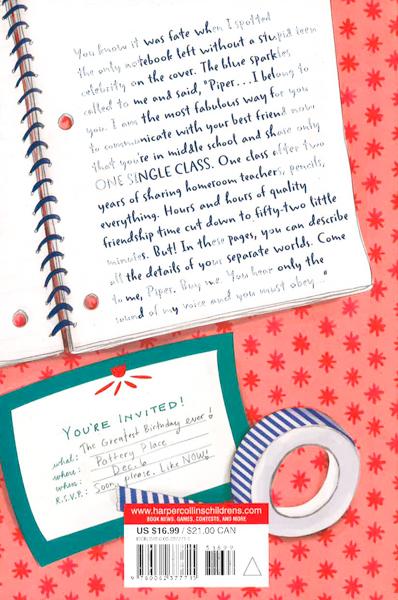 You know it was fate when I spotted
the only notebook left without a stupid teen
celebrity on the cover. The blue sparkles
called to me and said, "Piper... I belong to
you. I am the most fabulous way for you
to communicate with your best friend now
that you're in middle school and share only
ONE SINGLE CLASS. One class after two
years of sharing homeroom teachers, pencils,
everything. Hours and hours of quality
friendship time cut down to fifty-two little
minutes. But! In these pages, you can describe
all the details of your separate worlds. Come
to me, Piper. Buy me. You hear only the
sound of my voice and you must obey..."
YOU'RE INVITED!
what: The Greatest Birthday ever!
where: Pottery Place
when: Dec. 6
R.S.V.P.: Soon, please. Like NOW!
www.harpercollinschildrens.com
BOOK NEWS, GAMES, CONTESTS, AND MORE
US $16.99 / $21.00 CAN
51699
9 780062 377715